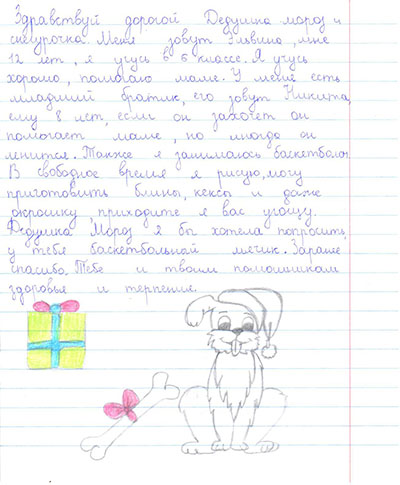 Здравствуй дорогой Дедушка мороз и
снегурочка. Меня зовут Эльвина, мне
12 лет, я учусь в 6 классе. Я учусь
хорошо, помогаю маме. У меня есть
младший братик, его зовут Никита,
ему 8 лет, если он захочет он
помогает маме, но иногда он
ленится. Также я занимаюсь баскетболом
В свободное время я рисую, могу
приготовить блины, кексы и даже
окрошку, приходите я вас угощу.
Дедушка Мороз я бы хотела попросить
у тебя баскетбольной мячик. Заране
спасибо. Тебе и твоим помошникам
здоровья и терпения.